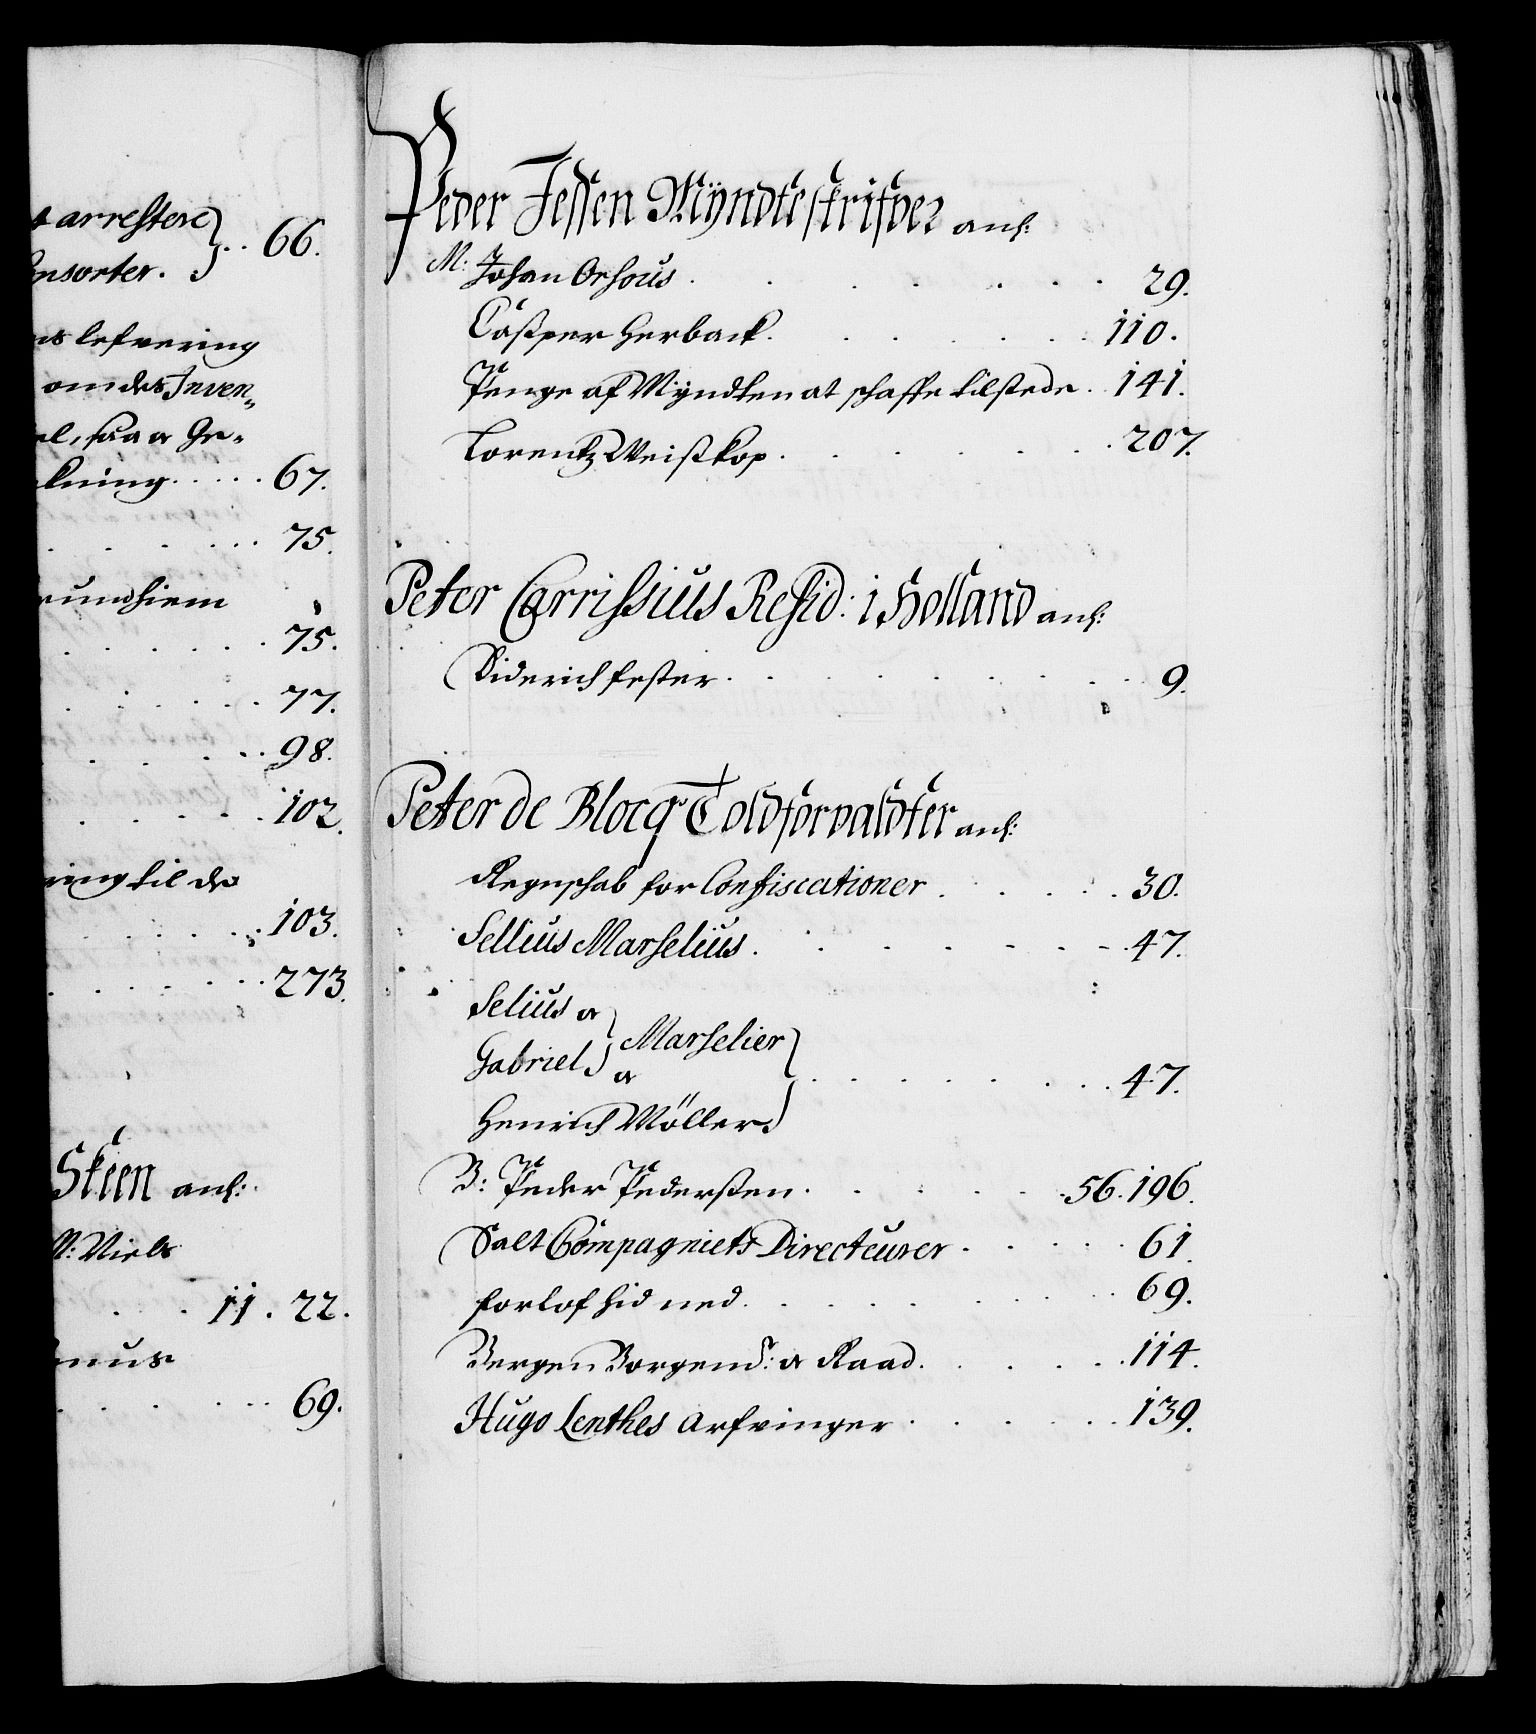 t arrestere
Consorter. 66.
ns lefvering
om des Inven„
el, saa og Be-
kning 67.
75.
rundhiem
75.
77.
98.
102.
ring til de
103.
273.
Skeen anl:
M: Niels
11. 22.
69.
Peder Jessen Mÿndteskrifver anl:
M. Johan Orhous 29.
Casper Herback 110.
Penge af Mÿndten at schaffe tilstede 141.
Lorentz Weiskop 207.
Peter Carrissius Resid: i Holland anl:
Diderich fester 9.
Peter de Blocq Toldforvaldter anl:
Regnschab for Confiscationer 30.
Sellius Marselius 47.
Selius og
Gabriel Marselier
og 47.
Henrich Möller
B: Peder Pedersen 56. 196.
Salt Compagniets Directeurer 61.
forlof hid ned 69.
Bergen Borgemd: og Raad 114.
Hugo Lenthes Arfvinger 139.